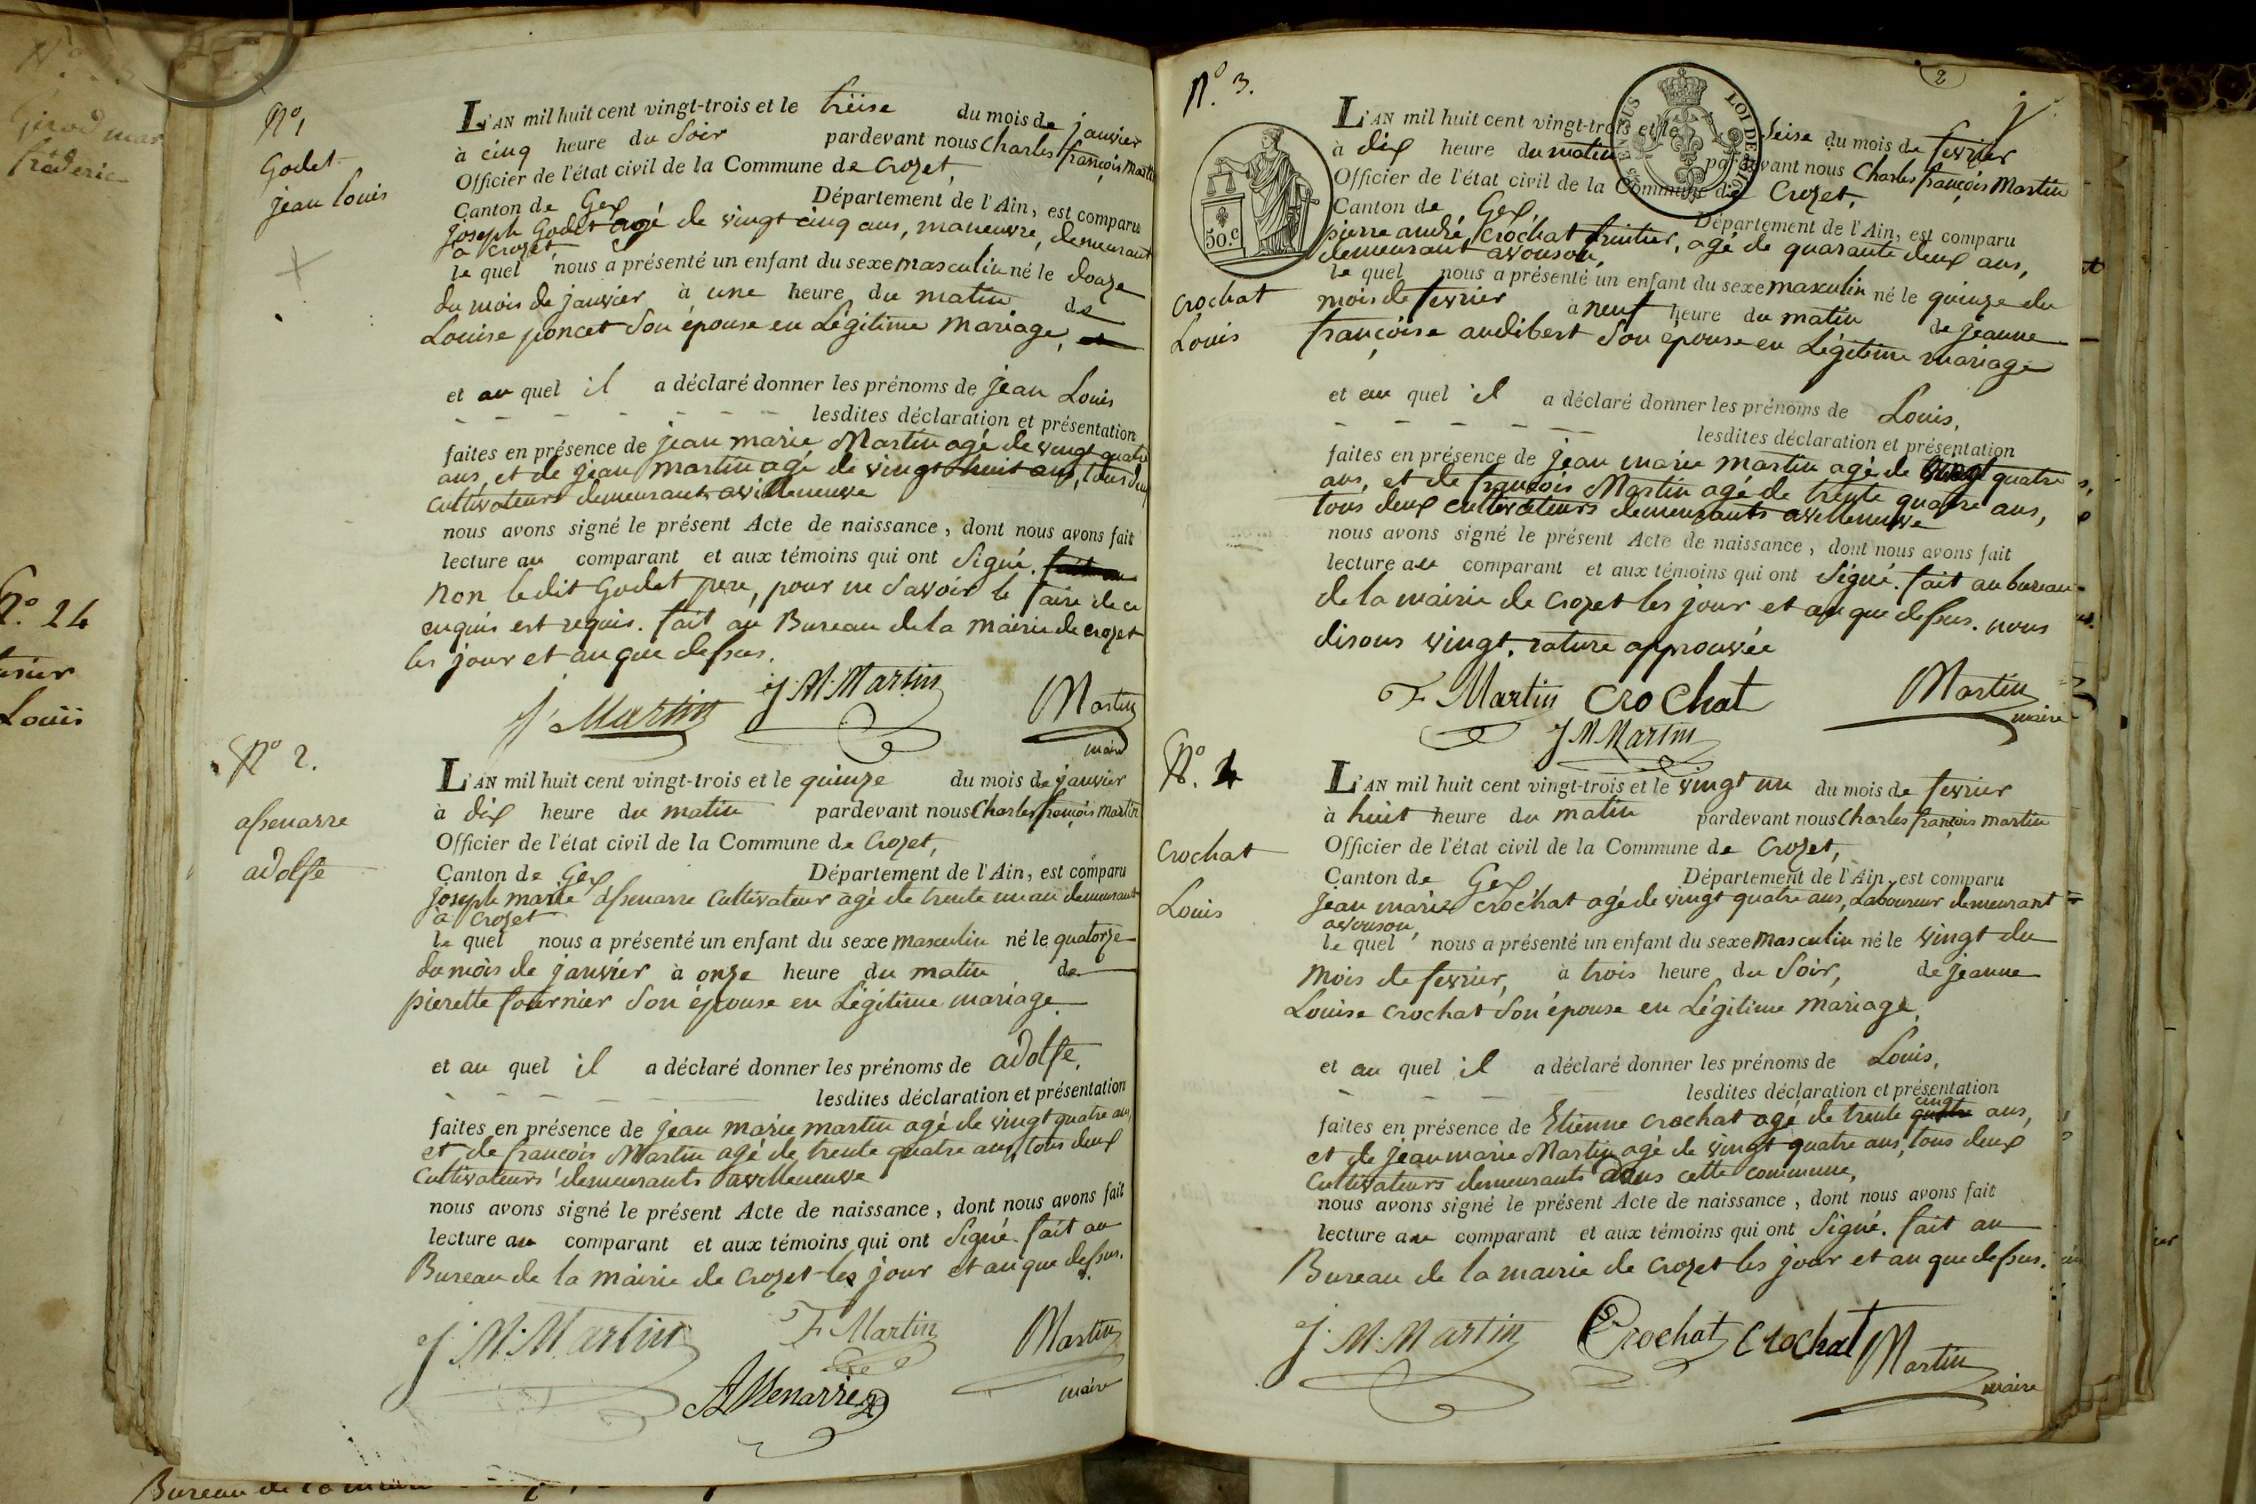 N° 1
Godet
jean Louis
L'AN mil huit cent vingt-trois et le treise du mois de janvier
à cinq heure du Soir pardevant nous Charles françois Martin
Officier de l'état civil de la Commune de Crozet,
Canton de Gex Département de l'Ain, est comparu
joseph Godet agé de vingt cinq ans, maneuvre, demeurant
à Crozet
le quel nous a présenté un enfant du sexe masculin né le douze
du mois de janvier à une heure du matin de
Louise poncet Son épouse en Légitime mariage,
et au quel il a déclaré donner les prénoms de jean Louis
lesdites déclaration et présentation
faites en présence de jean marie Martin agé de vingt quatre
ans, et de jean martin agé de vingt huit ans, tous deux
cultivateurs demeurants avilleneuve
nous avons signé le présent Acte de naissance, dont nous avons fait
lecture au comparant et aux témoins qui ont Signé.
Non ledit Godet pere, pour ne Savoir le faire de ce
enquis est requis. fait au Bureau de la mairie de crozet
les jour et an que dessus.
J Martin J. M. Martin Martin
maire
N° 2.
assenarre
adolfe
L'AN mil huit cent vingt-trois et le quinze du mois de janvier
à dix heure du matin pardevant nous Charles françois Martin
Officier de l'état civil de la Commune de Crozet,
Canton de Gex Département de l'Ain, est comparu
joseph marie assenarre Cultivateur agé de trente un an demeurant
à Crozet
le quel nous a présenté un enfant du sexe masculin né le quatorze
du mois de janvier à onze heure du matin de
pierette fournier Son épouse en Légitime mariage
et au quel il a déclaré donner les prénoms de adolfe,
lesdites déclaration et présentation
faites en présence de jean marie martin agé de vingt quatre ans,
et de francois Martin agé de trente quatre ans, tous deux
Cultivateurs demeurants avilleneuve
nous avons signé le présent Acte de naissance, dont nous avons fait
lecture au comparant et aux témoins qui ont Signé. fait au
Bureau de la mairie de Crozet les jour et an que dessus.
J. M. Martin F Martin Martin
maire
Assenarre
N°. 3.
2
L'AN mil huit cent vingt-trois et le Seise du mois de fevrier
à dix heure du matin pardevant nous Charles françois Martin
Officier de l'état civil de la Commune de Crozet,
Canton de Gex, Département de l'Ain, est comparu
pierre andré Crochat fruitier, agé de quarante deux ans,
demeurant avouson,
50.c
LOI DE
Crochat
Louis
le quel nous a présenté un enfant du sexe masculin né le quinze du
mois de fevrier à neuf heure du matin de jeanne
françoise audibert Son épouse en Légitime mariage
et au quel il a déclaré donner les prénoms de Louis,
lesdites déclaration et présentation
faites en présence de jean marie martin agé de vingt quatre
ans, et de francois Martin agé de trente quatre ans,
tous deux cultivateurs demeurants avilleneuve
nous avons signé le présent Acte de naissance, dont nous avons fait
lecture au comparant et aux témoins qui ont Signé. fait au bureau
de la mairie de crozet les jour et an que dessus. nous
disons vingt. rature approuvée
F Martin Crochat Martin
maire
J M Martin
N°. 4
Crochat
Louis
L'AN mil huit cent vingt-trois et le vingt un du mois de fevrier
à huit heure du matin pardevant nous Charles françois martin
Officier de l'état civil de la Commune de Crozet,
Canton de Gex Département de l'Ain, est comparu
jean marie crochat agé de vingt quatre ans, Laboureur demeurant
avouson,
le quel nous a présenté un enfant du sexe masculin né le vingt du
mois de fevrier, à trois heure du Soir, de jeanne
Louise Crochat Son épouse en Légitime mariage,
et au quel il a déclaré donner les prénoms de Louis,
lesdites déclaration et présentation
faites en présence de Etienne crochat agé de trente quatre cinq ans,
et de jean marie Martin agé de vingt quatre ans, tous deux
Cultivateurs demeurants dans cette commune,
nous avons signé le présent Acte de naissance, dont nous avons fait
lecture au comparant et aux témoins qui ont Signé. fait au
Bureau de la mairie de Crozet les jour et an que dessus.
J. M. Martin Crochat Crochat Martin
maire
N°. 24
Louis